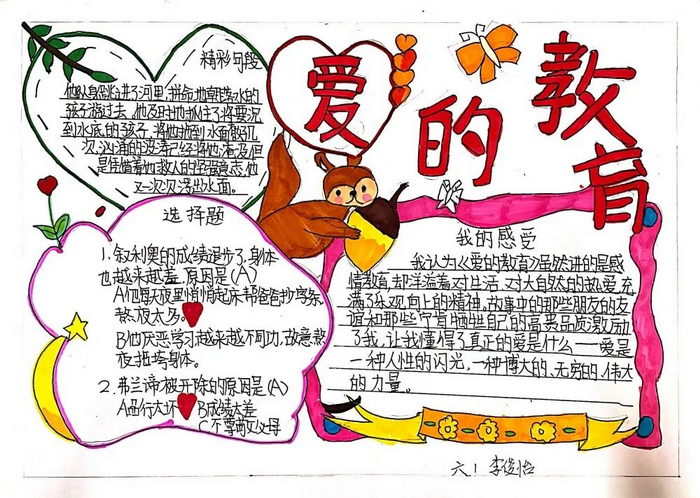 爱的教育
精彩句段
他纵身跳进了河里,拼命地朝落水的
孩子游过去,他及时地抓住了将要沉
到水底的孩子,将他拖到水面
次,汹涌的波涛已经将他淹没,但
是凭借着他救人的坚强意志,他
又一次次浮出水面。
选择题
1.叙利奥的成绩退步了,身体
也越来越差,原因是(A)
A他每天夜里悄悄起床帮爸爸抄字条,
熬夜太多。
B他厌恶学习越来越不用功,故意熬
夜拖垮身体。
2.弗兰谛被开除的原因是(A)
A品行太坏 B成绩太差
C不孝敬父母
我的感受
我认为《爱的教育》虽然讲的是感
情教育,却洋溢着对生活、对大自然的热爱,充
满了乐观向上的精神。故事中的那些朋友的友
谊和那些宁肯牺牲自己的高贵品质激励
了我,让我懂得了真正的爱是什么——爱是
一种人性的闪光,一种博大的、无穷的、伟大
的力量。
六1 李俊怡